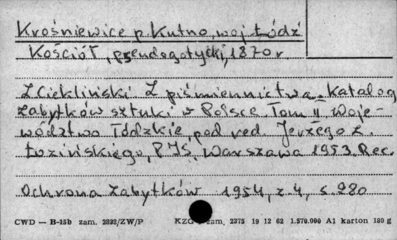 Krośniewice p. Kutno, woj. Łódź
Kościół, pseudogotycki, 1870 r
L Ciekliński Z piśmiennictwa. Katalog
zabytków sztuki w Polsce Tom II Woje-
wództwo Łódzkie, pod red. Jerzego Z.
Łozińskiego, PIS, Warszawa 1953. Rec.
Ochrona Zabytków 1954, z. 4, s. 280
CWD — B-15b zam. 2892/ZW/P KZG zam. 2375 19 12 62 1.570.000 A1 karton 180 g